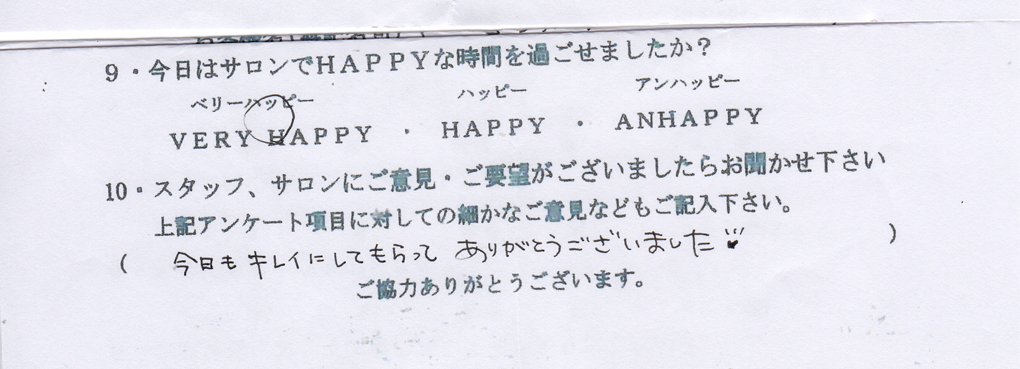 9・今日はサロンでHAPPYな時間を過ごせましたか？
ベリーハッピー　ハッピー　アンハッピー
VERY HAPPY ・ HAPPY ・ ANHAPPY
10・スタッフ、サロンにご意見・ご要望がございましたらお聞かせ下さい
上記アンケート項目に対しての細かなご意見などもご記入下さい。
（ 今日もキレイにしてもらって ありがとうございました ）
ご協力ありがとうございます。